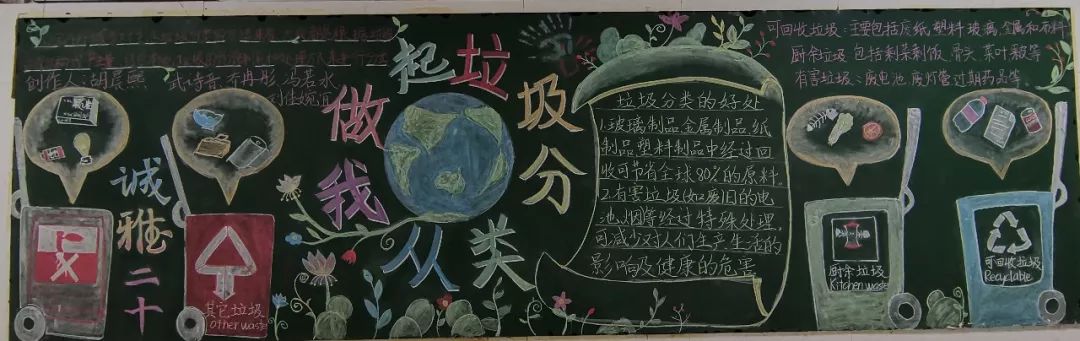 创作人：胡晨熙 武诗音 齐冉彤 冯若水
刘佳婉宜
诚雅二十
垃圾分类
从我做起
垃圾分类的好处
1.玻璃制品金属制品.纸
制品塑料制品中经过回
收可节省全球80%的原料.
2.有害垃圾(如废旧的电
池.烟等经过特殊处理,
可减少对人们生产生活的
影响及健康的危害
可回收垃圾：主要包括废纸,塑料,玻璃,金属和布料
厨余垃圾 包括剩菜剩饭,骨头,菜叶
有害垃圾：废电池,废灯管,过期药品等.
其它垃圾
other waste
厨余垃圾
Kitchen waste
可回收垃圾
Recyclable